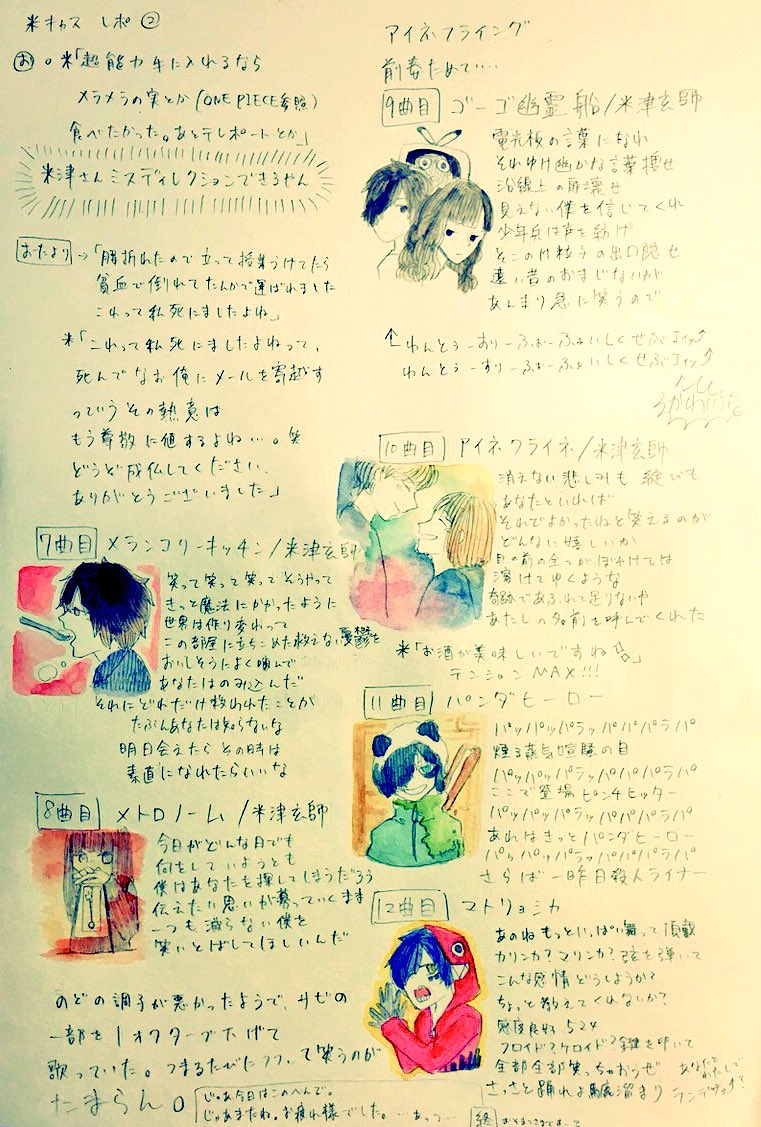 米キャス レポ②
お 。米「超能力手に入れるなら
メラメラの実とか(ONE PIECE参照)
食べたかった。あとテレポートとか」
米津さんミスディレクションできるやん
おたより→「腰折れたので立って授業うけてたら
貧血で倒れてたんかで運ばれました
これって私死にましたよね」
米「これって私死にましたよねって、
死んでなお俺にメールを寄越す
っていうその熱意は
もう尊敬に値するよね…。笑
どうぞ成仏してください、
ありがとうございました」
7曲目 メランコリーキッチン/米津玄師
笑って笑って笑ってそうやって
きっと魔法にかかったように
世界は作り変わって
この部屋に立ちこめた救えない憂鬱を
おいしそうによく噛んで
あなたはのみ込んだ
それにどれだけ救われたことか
たぶんあなたは知らないな
明日会えたらその時は
素直になれたらいいな
8曲目 メトロノーム/米津玄師
今日がどんな日でも
何をしていようとも
僕はあなたを探してしまうだろう
伝えたい思いが募っていくまま
一つも減らない僕を
笑いとばしてほしいんだ
のどの調子が悪かったようで、サビの
一部を1オクターブ下げて
歌っていた。つまるたびにフフ、て笑うのが
たまらん。
じゃあ今日はこのへんで。
じゃあまたね。お疲れ様でした。…あっ…
アイネフライング
前奏ためて…
9曲目 ゴーゴー幽霊船/米津玄師
電光板の言葉になれ
それゆけ幽かな言葉捜せ
沿線上の扉壊せ
見えない僕を信じてくれ
少年兵は声を紡げ
そこのけ粒子の出口隠せ
遠い昔のおまじないが
あんまり急に笑うので
↑わんとぅーすりーふぉーふぁいしくせぶ
わんとぅーすりーふぉーふぁいしくせぶ
10曲目 アイネクライネ/米津玄師
消えない悲しみも綻びも
あなたといれば
それでよかったねと笑えるのが
どんなに嬉しいか
目の前の全てがぼやけては
溶けてゆくような
奇跡であふれて足りないや
あたしの名前を呼んでくれた
米「お酒が美味しいですね」
テンションMAX!!!
11曲目 パンダヒーロー
パッパッパラッパパパラパ
煙る蒸気喧騒の目
パッパッパラッパパパラパ
ここで登場ピンチヒッター
パッパッパラッパパパラパ
あれはきっとパンダヒーロー
パッパッパラッパパパラパ
さらば一昨日殺人ライナー
12曲目 マトリョシカ
あのねもっといっぱい舞って頂戴
カリンカ?マリンカ?弦を弾いて
こんな感情どうしようか?
ちょっと教えてくれないか?
感度良好524
フロイド?ケロイド?鍵を叩いて
全部全部笑っちゃおうぜ
さっさと踊れよ馬鹿溜まり
あなたと
わたしで
ランデヴー?
終